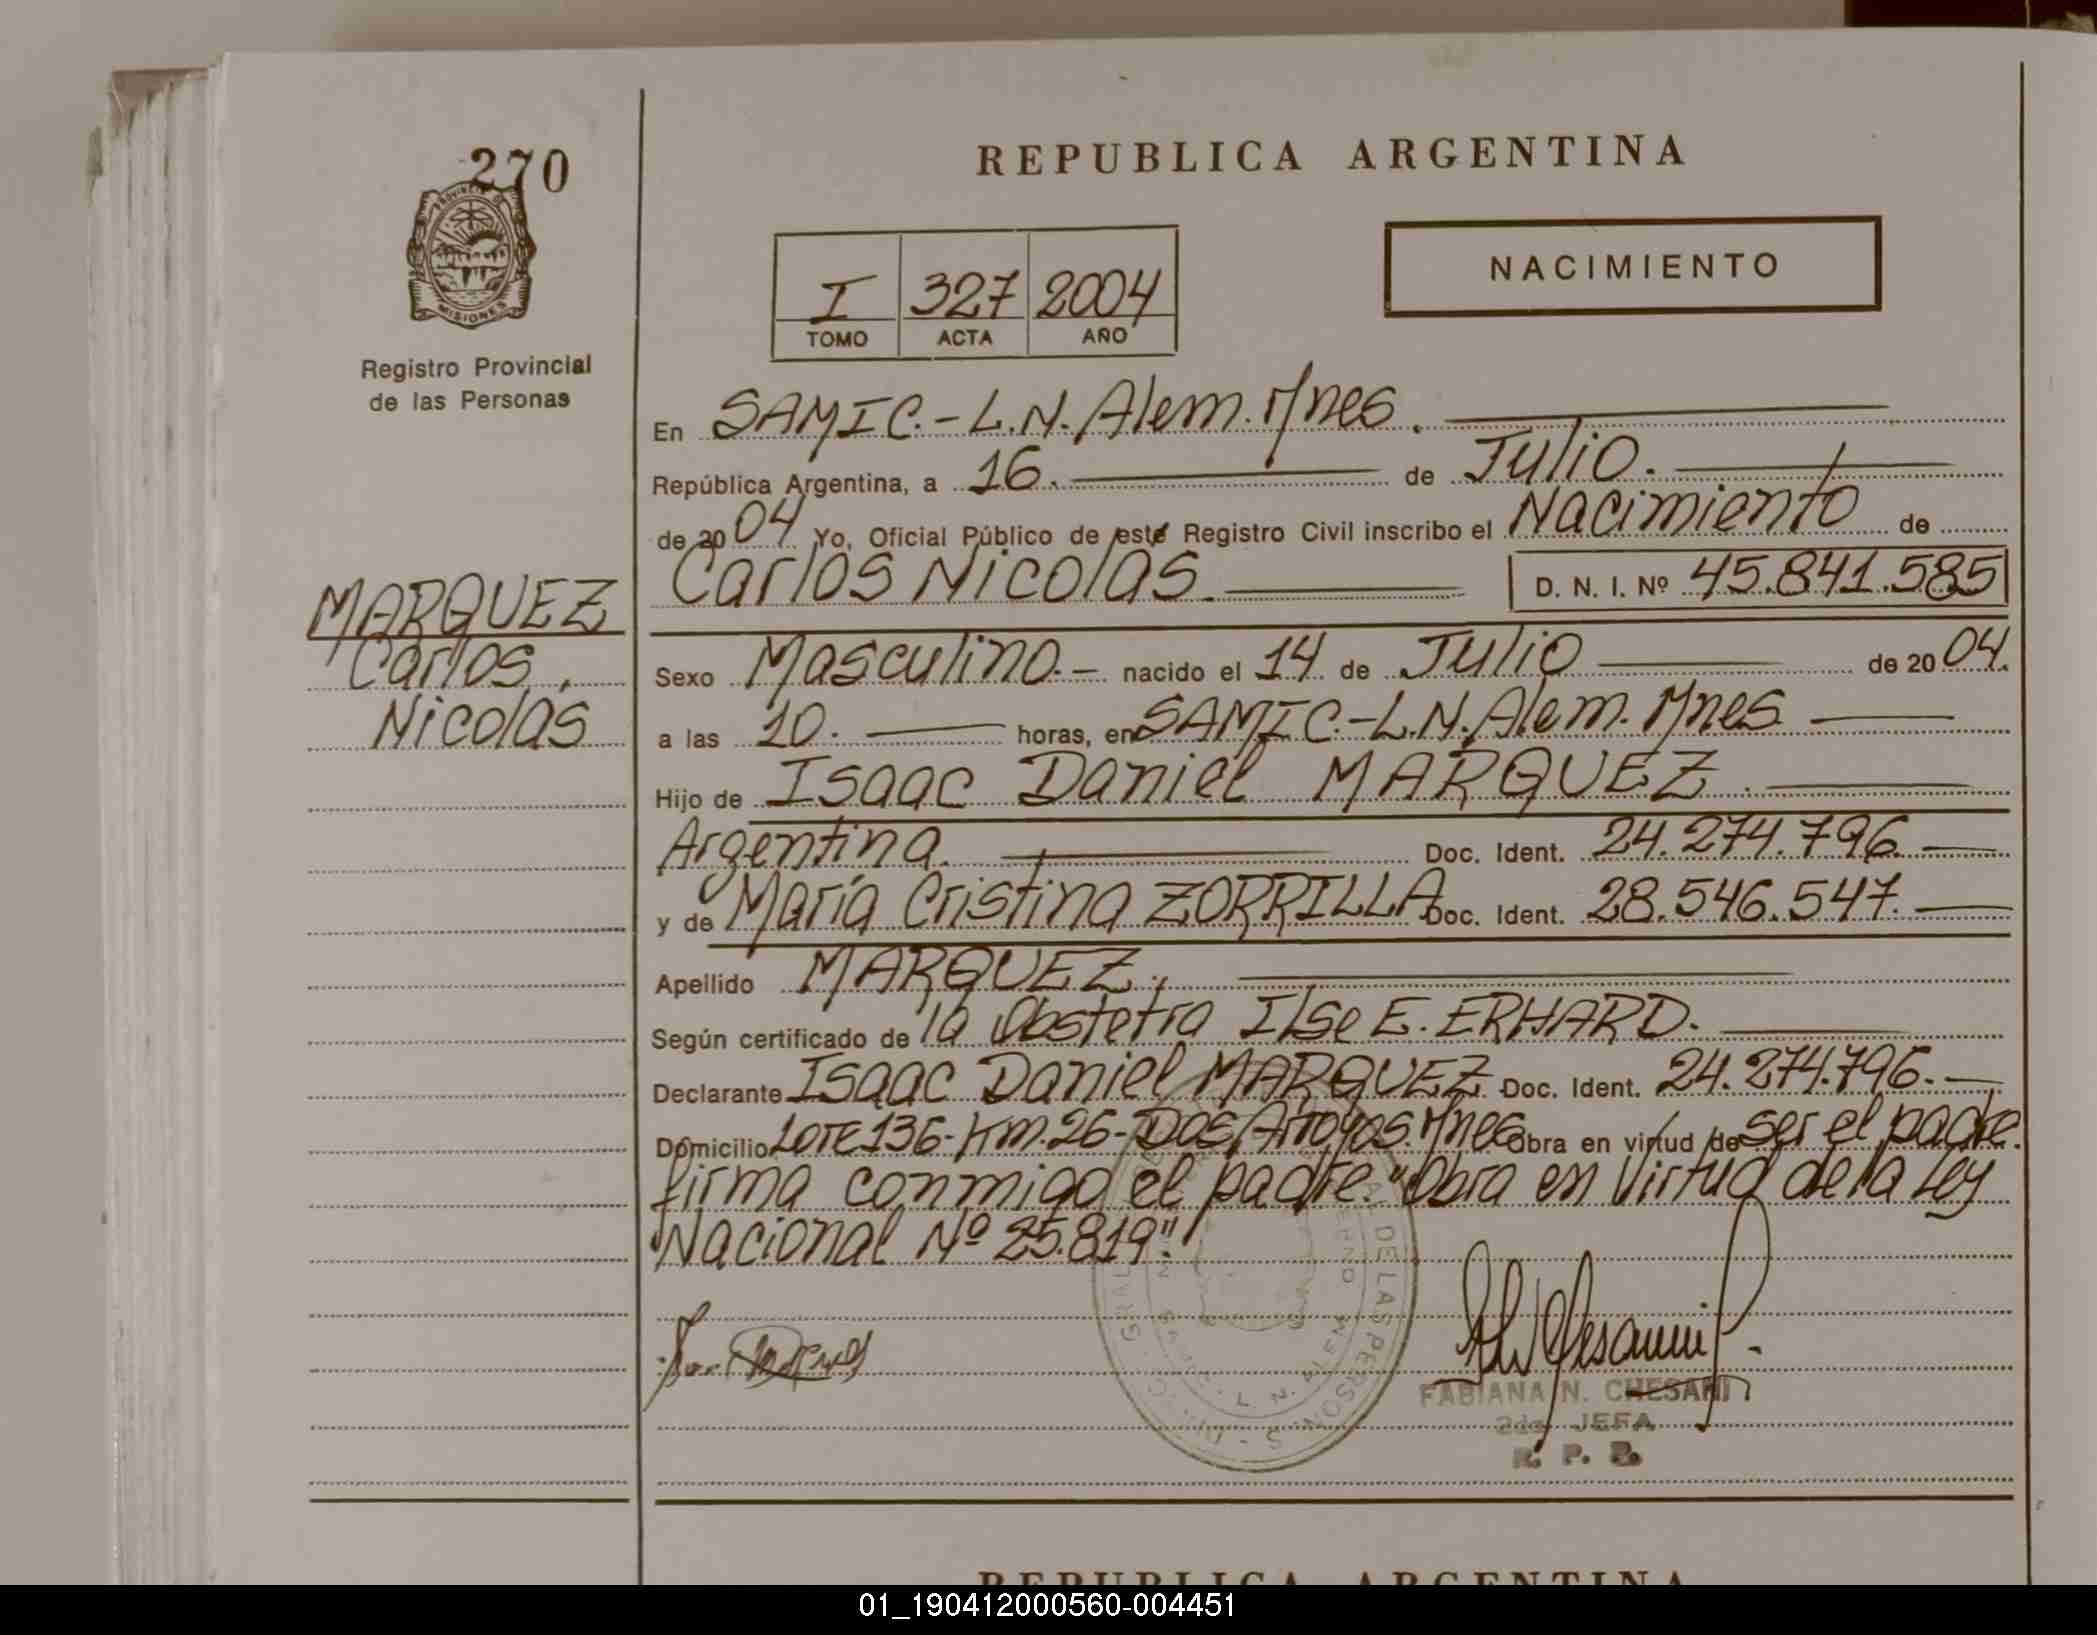 270
PROVINCIA DE
MISIONES
Registro Provincial
de las Personas
MARQUEZ
Carlos
Nicolas
REPUBLICA ARGENTINA
NACIMIENTO
I 327 2004
TOMO ACTA AÑO
En SAMIC.-L.N.Alem.Mnes.
República Argentina, a 16. de Julio.
de 2004 Yo, Oficial Público de este Registro Civil inscribo el Nacimiento de
Carlos Nicolas. D. N. I. Nº 45.841.585
Sexo Masculino.- nacido el 14 de Julio de 2004.
a las 10. horas, en SAMIC.-L.N.Alem.Mnes
Hijo de Isaac Daniel MARQUEZ.
Argentina. Doc. Ident. 24.274.796.
y de María Cristina ZORRILLA Doc. Ident. 28.546.547.
Apellido MARQUEZ.
Según certificado de la Obstetra Ilse E. ERHARD.
Declarante Isaac Daniel MARQUEZ Doc. Ident. 24.274.796.-
Domicilio Lote 136-Km.26-Dos Arroyos.Mnes Obra en virtud de ser el padre.
firma conmigo el padre."Obra en Virtud de la Ley
Nacional Nº 25.819".
FABIANA N. CHESANI
2da JEFA
R. P. P.
REPUBLICA ARGENTINA
01_190412000560-004451